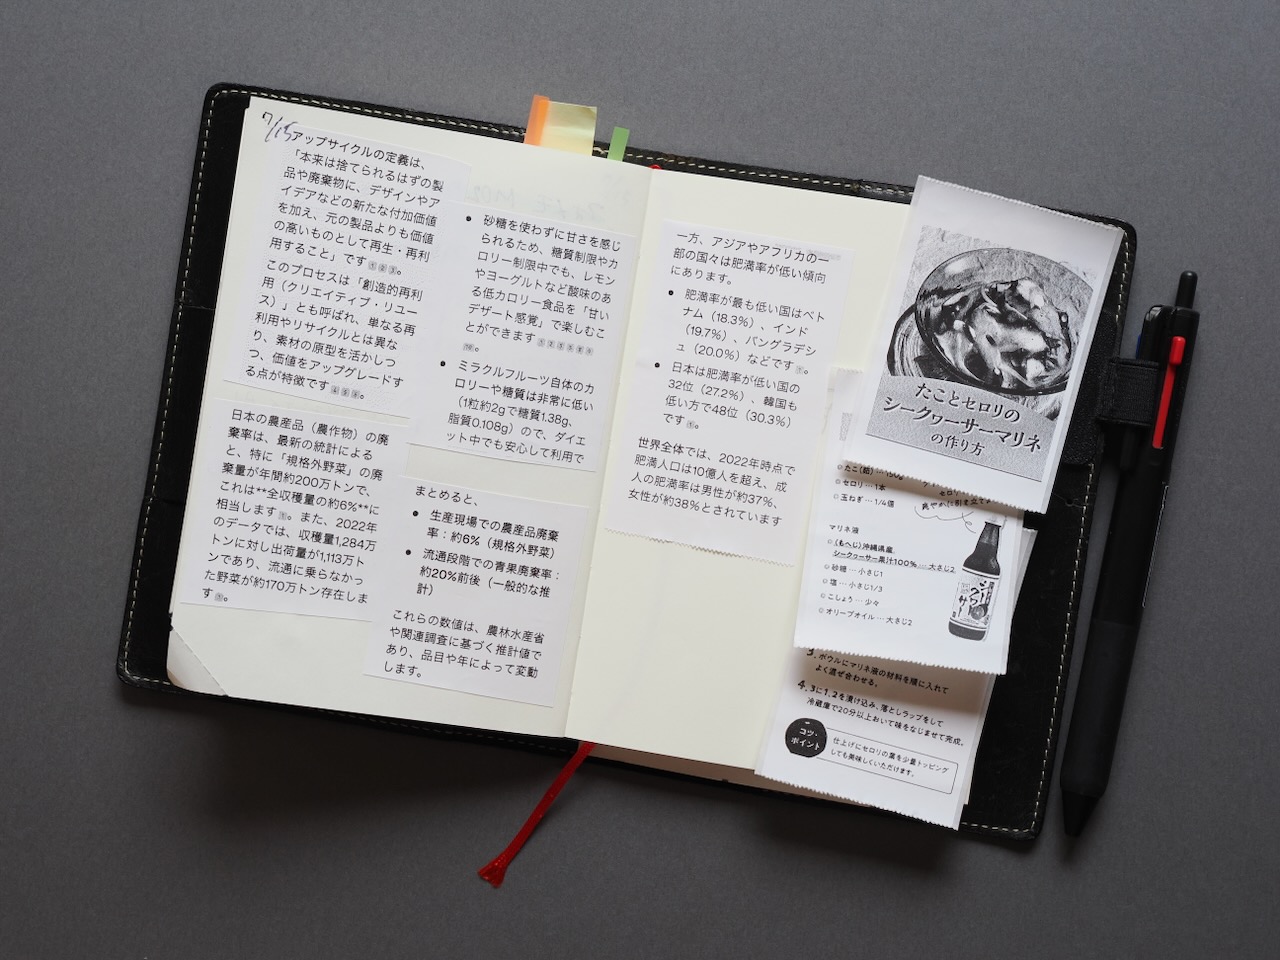 7/15
アップサイクルの定義は、
「本来は捨てられるはずの製
品や廃棄物に、デザインやア
イデアなどの新たな付加価値
を加え、元の製品よりも価値
の高いものとして再生・再利
用すること」です①②③。
このプロセスは「創造的再利
用（クリエイティブ・リユー
ス）」とも呼ばれ、単なる再
利用やリサイクルとは異な
り、素材の原型を活かしつ
つ、価値をアップグレードす
る点が特徴です④⑤③。
日本の農産品（農作物）の廃
棄率は、最新の統計による
と、特に「規格外野菜」の廃
棄量が年間約200万トンで、
これは**全収穫量の約6%**に
相当します①。また、2022年
のデータでは、収穫量1,284万
トンに対し出荷量が1,113万ト
ンであり、流通に乗らなかっ
た野菜が約170万トン存在しま
す①。
• 砂糖を使わずに甘さを感じ
られるため、糖質制限やカ
ロリー制限中でも、レモン
やヨーグルトなど酸味のあ
る低カロリー食品を「甘い
デザート感覚」で楽しむこ
とができます
。
• ミラクルフルーツ自体のカ
ロリーや糖質は非常に低い
（1粒約2gで糖質1.38g、
脂質0.108g）ので、ダイエ
ット中でも安心して利用で
まとめると、
• 生産現場での農産品廃棄
率：約6%（規格外野菜）
• 流通段階での青果廃棄率：
約20%前後（一般的な推
計）
これらの数値は、農林水産省
や関連調査に基づく推計値で
あり、品目や年によって変動
します。
一方、アジアやアフリカの一
部の国々は肥満率が低い傾向
にあります。
• 肥満率が最も低い国はベト
ナム（18.3%）、インド
（19.7%）、バングラデシ
ュ（20.0%）などです①。
• 日本は肥満率が低い国の
32位（27.2%）、韓国も
低い方で48位（30.3%）
です①。
世界全体では、2022年時点で
肥満人口は10億人を超え、成
人の肥満率は男性が約37%、
女性が約38%とされています
たことセロリの
シークヮーサーマリネ
の作り方
◎セロリ…1本
◎玉ねぎ…1/4個
爽やかに引き立てる
マリネ液
◎（もへじ）沖縄県産
シークヮーサー果汁100%…大さじ2
◎砂糖…小さじ1
◎塩…小さじ1/3
◎こしょう…少々
◎オリーブオイル…大さじ2
シークヮーサー
3. ボウルにマリネ液の材料を順に入れて
よく混ぜ合わせる。
4. 3に1、2を漬け込み、落としラップをして
冷蔵庫で20分以上おいて味をなじませて完成。
コツ・
ポイント
仕上げにセロリの葉を少量トッピング
しても美味しくいただけます。